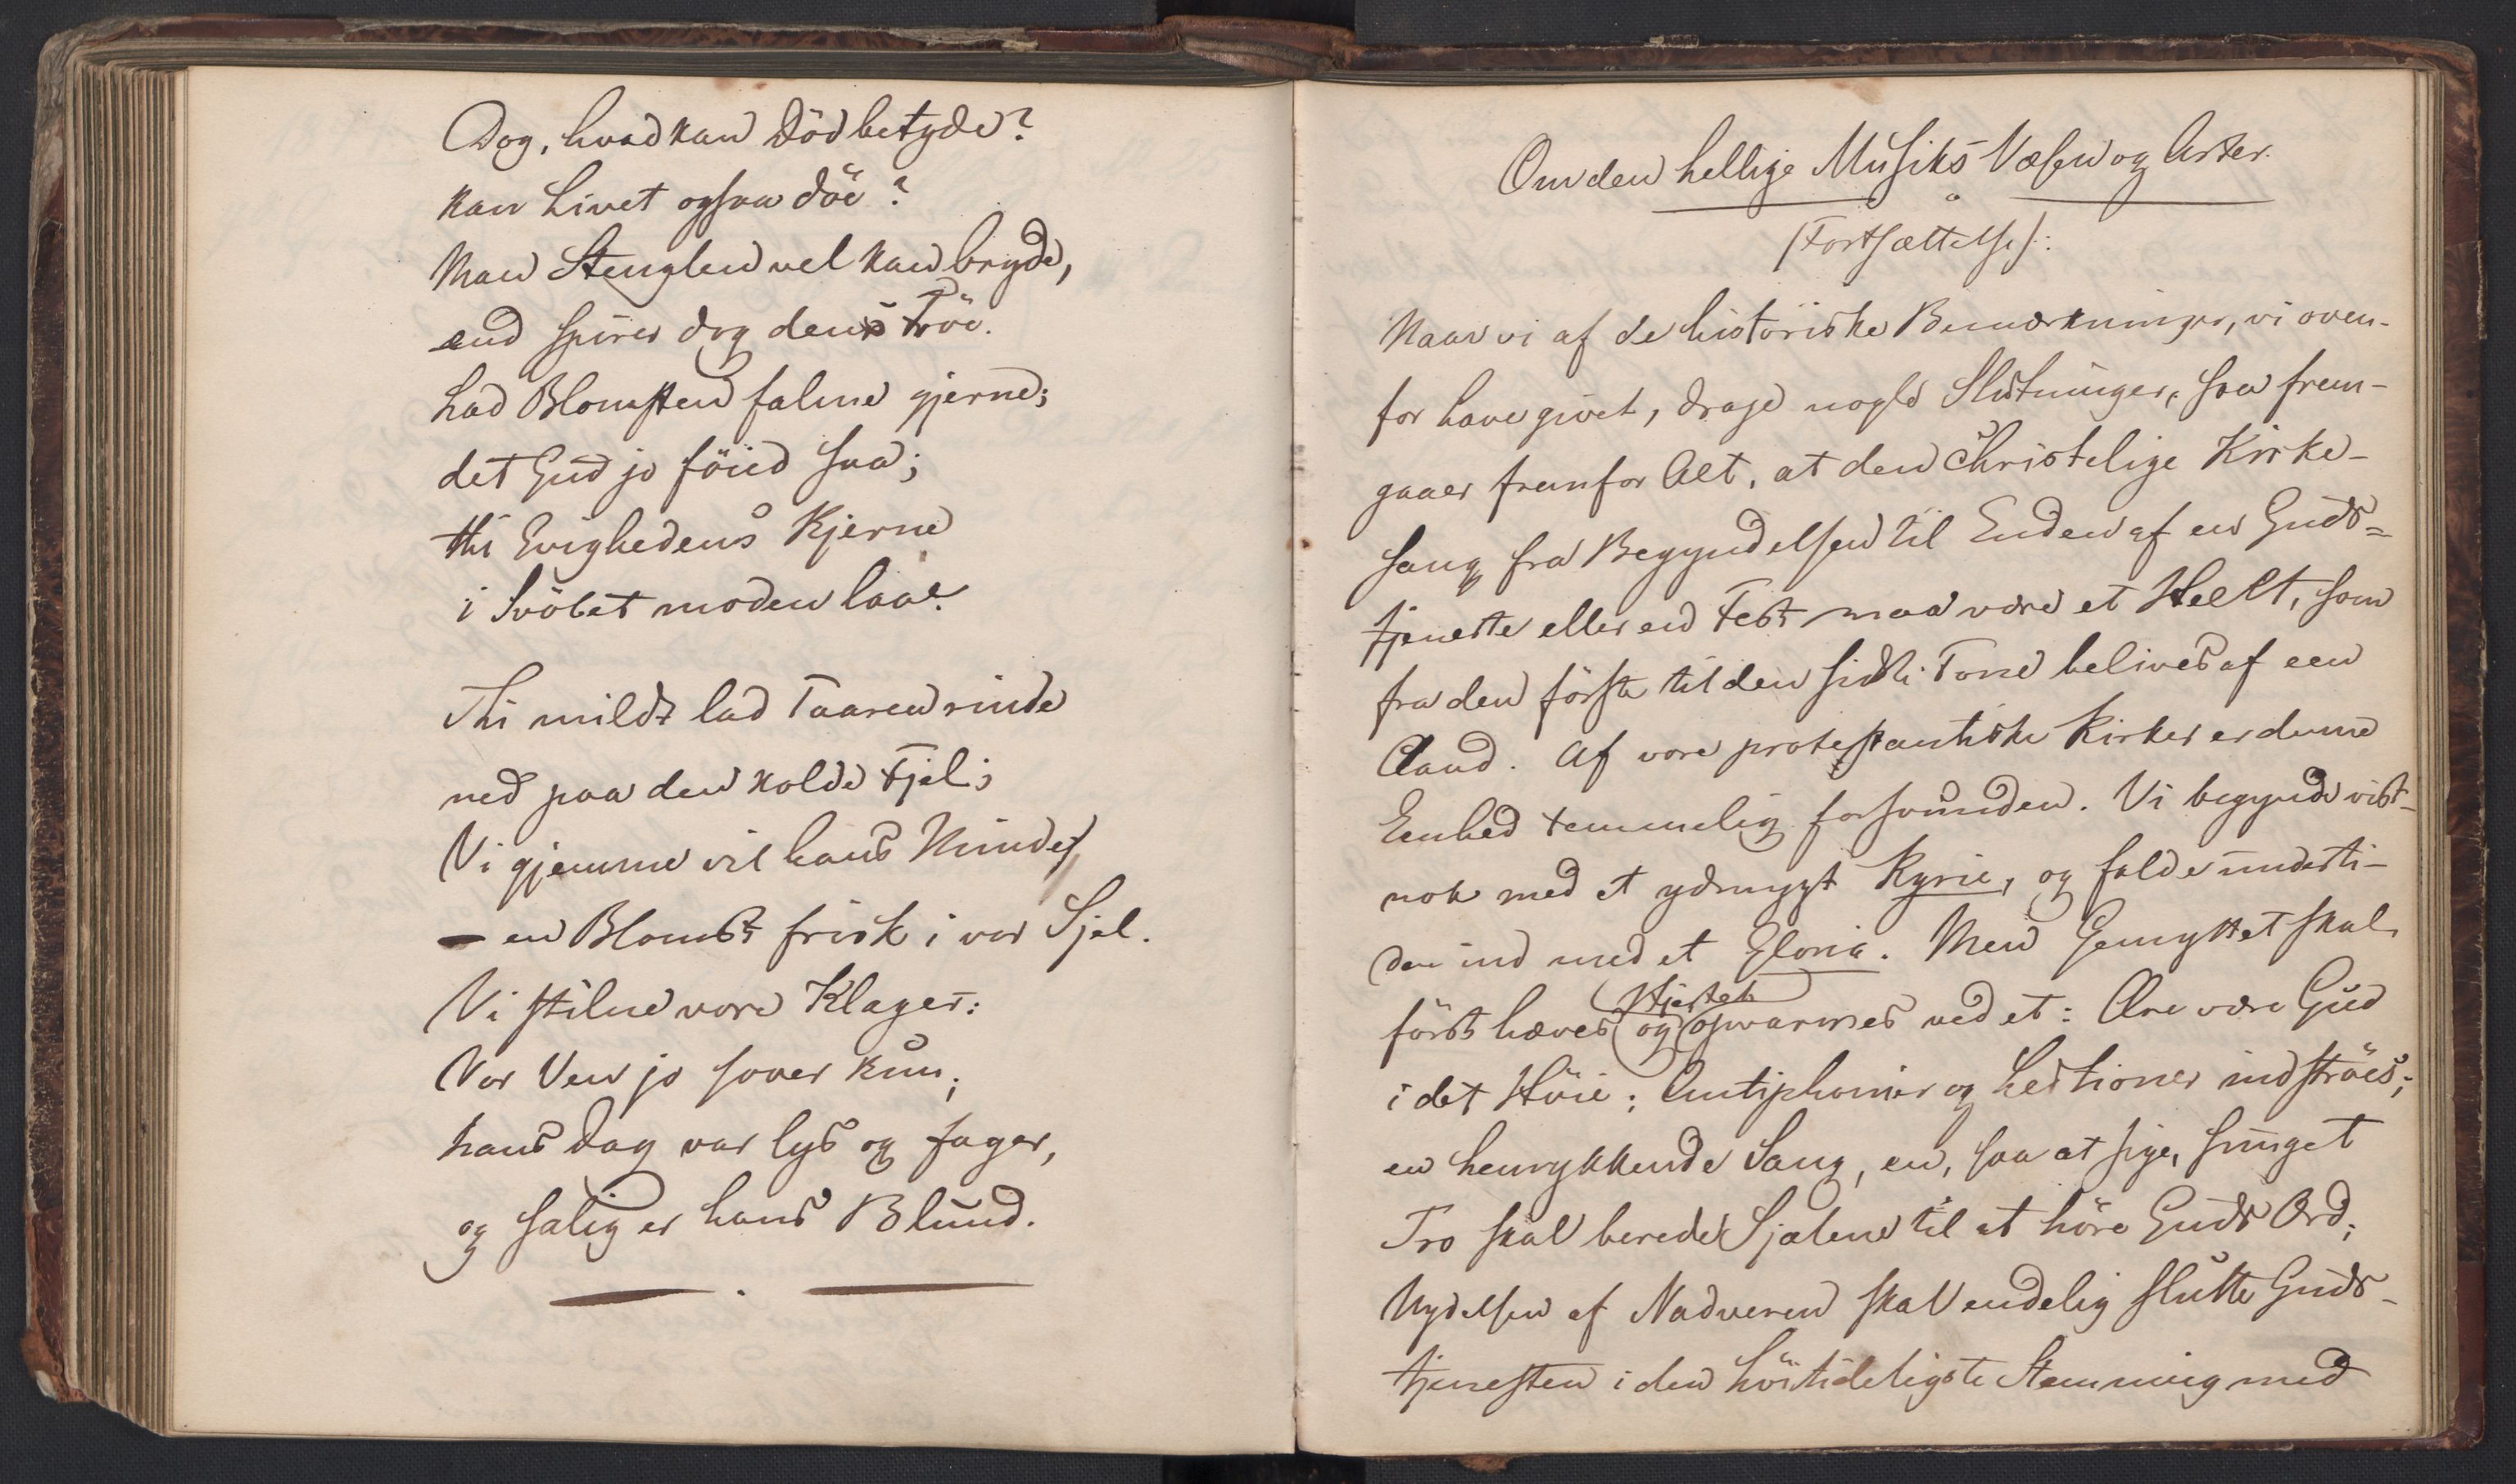 Dog, hvad kan Död betyde?
kan Livet ogsaa döe?
Man Stenglen vel kan bryde,
end spirer dog dens Fröe.
Lad Blomsten falme gjerne;
det Gud jo föied saa;
thi Evighedens Kjerne
i Svöbet moden laae.
Thi mildt lad Taaren rinde
ned paa den kolde Fjel;
Vi gjemme vil hans Minde
– en Blomst frisk i vor Sjel.
Vi stilne vore Klager:
Vor Ven jo sover kun;
hans Dag var lys og fager,
og salig er hans Blund.
Om den hellige Musiks Væsen og Arter.
(Fortsættelse):
Naar vi af de historiske Bemærkninger, vi oven-
for have givet, drage nogle Slutninger, saa frem-
gaaer fremfor Alt, at den christelige Kirke-
sang fra Begyndelsen til Enden af en Guds=
tjeneste eller en Fest maa være et Heelt, som
fra den förste til den sidste Tone belives af een
Aand. Af vore protestantiske Kirker er denne
Eenhed temmelig forsvunden. Vi begynde vist-
nok med et ydmygt Kyrie, og falde underti-
den ind med et Gloria. Men Gemyttet skal
Hjertet
först hæves og opvarmes ved et: Ære være Gud
i det Höie; Antiphonier og Lectioner indströes;
en henrykkende Sang, en, saa at sige, sunget
Tro skal berede Sjælene til at höre Guds Ord;
Nydelsen af Nadveren skal endelig slutte Guds-
tjenesten i den höitideligste Stemning med